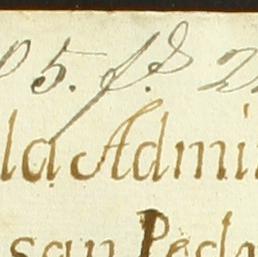 5. f.º 2
la Admi
san Pedr